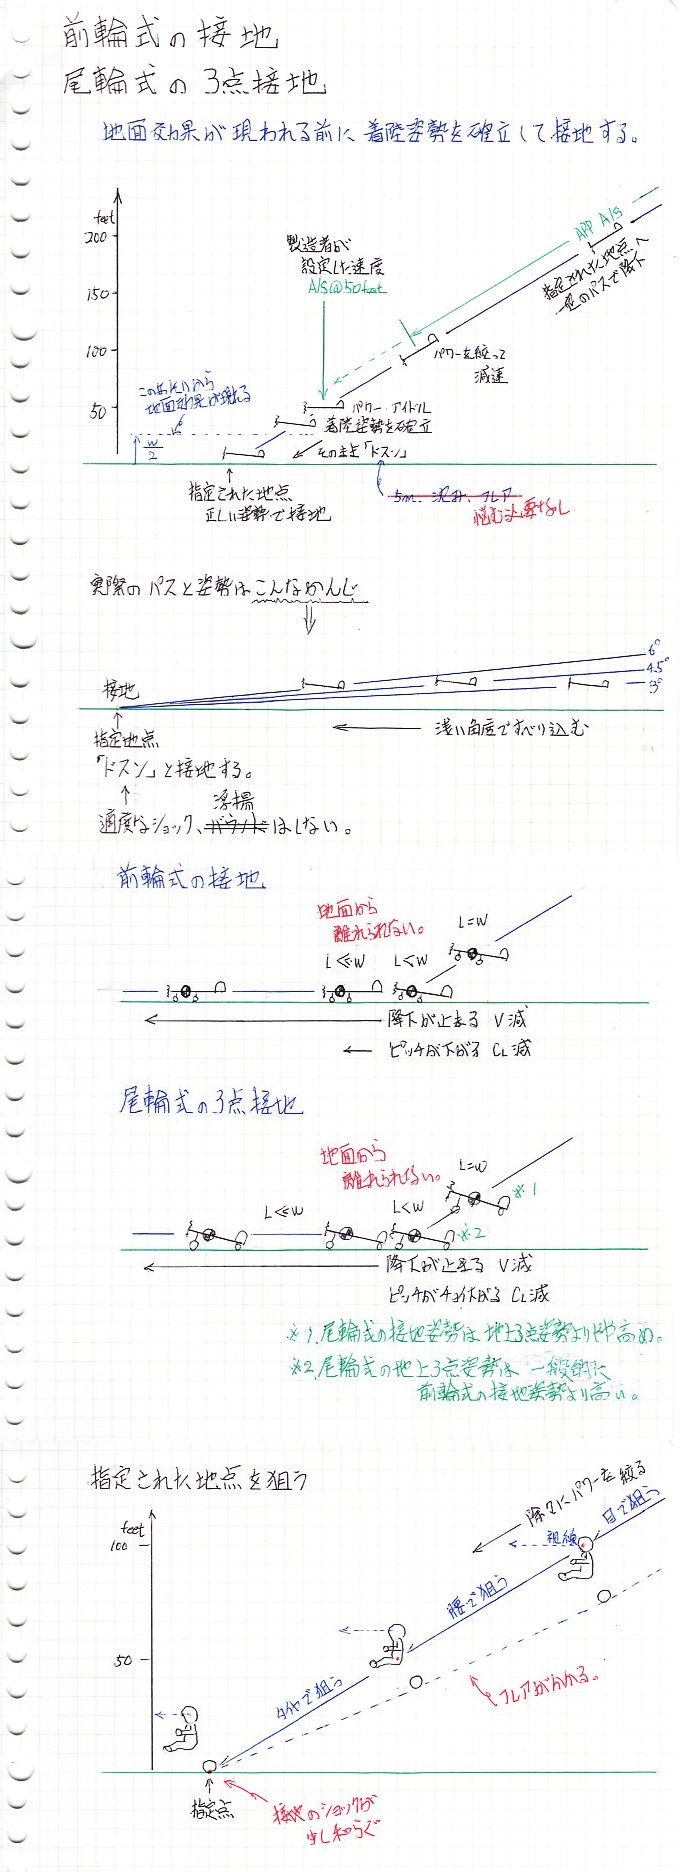 前輪式の接地
尾輪式の3点接地
地面効果が現われる前に着陸姿勢を確立して接地する。
feet
200
150
100
50
製造者が
設定した速度
A/S@50feet
APP A/S
指定された地点へ
一定のパスで降下
パワーを絞って
減速
このあたりから
地面効果が現れる
W
2
パワーアイドル
着陸姿勢を確立
そのまま「ドスン」
指定された地点
正しい姿勢で接地
5m、沈み、フレア
悩む必要なし
実際のパスと姿勢はこんなかんじ
6°
4.5°
3°
接地
指定地点
浅い角度ですべり込む
「ドスン」と接地する。
浮揚
適度なショック、バウンドはしない。
前輪式の接地
地面から
離れられない。
L=W
L≪W
L<W
降下が止まる V減
ピッチが下がる CL減
尾輪式の3点接地
地面から
離れられない。
L=W
※1
L≪W
L<W
※2
降下が止まる V減
ピッチがチョイ下がる CL減
※1.尾輪式の接地姿勢は地上3点姿勢よりやや高め。
※2.尾輪式の地上3点姿勢は一般的に
前輪式の接地姿勢より高い。
指定された地点を狙う
feet
100
50
除々にパワーを絞る
目で狙う
視線
腰で狙う
タイヤで狙う
フレアがかかる。
指定点
接地のショックが
少し和らぐ